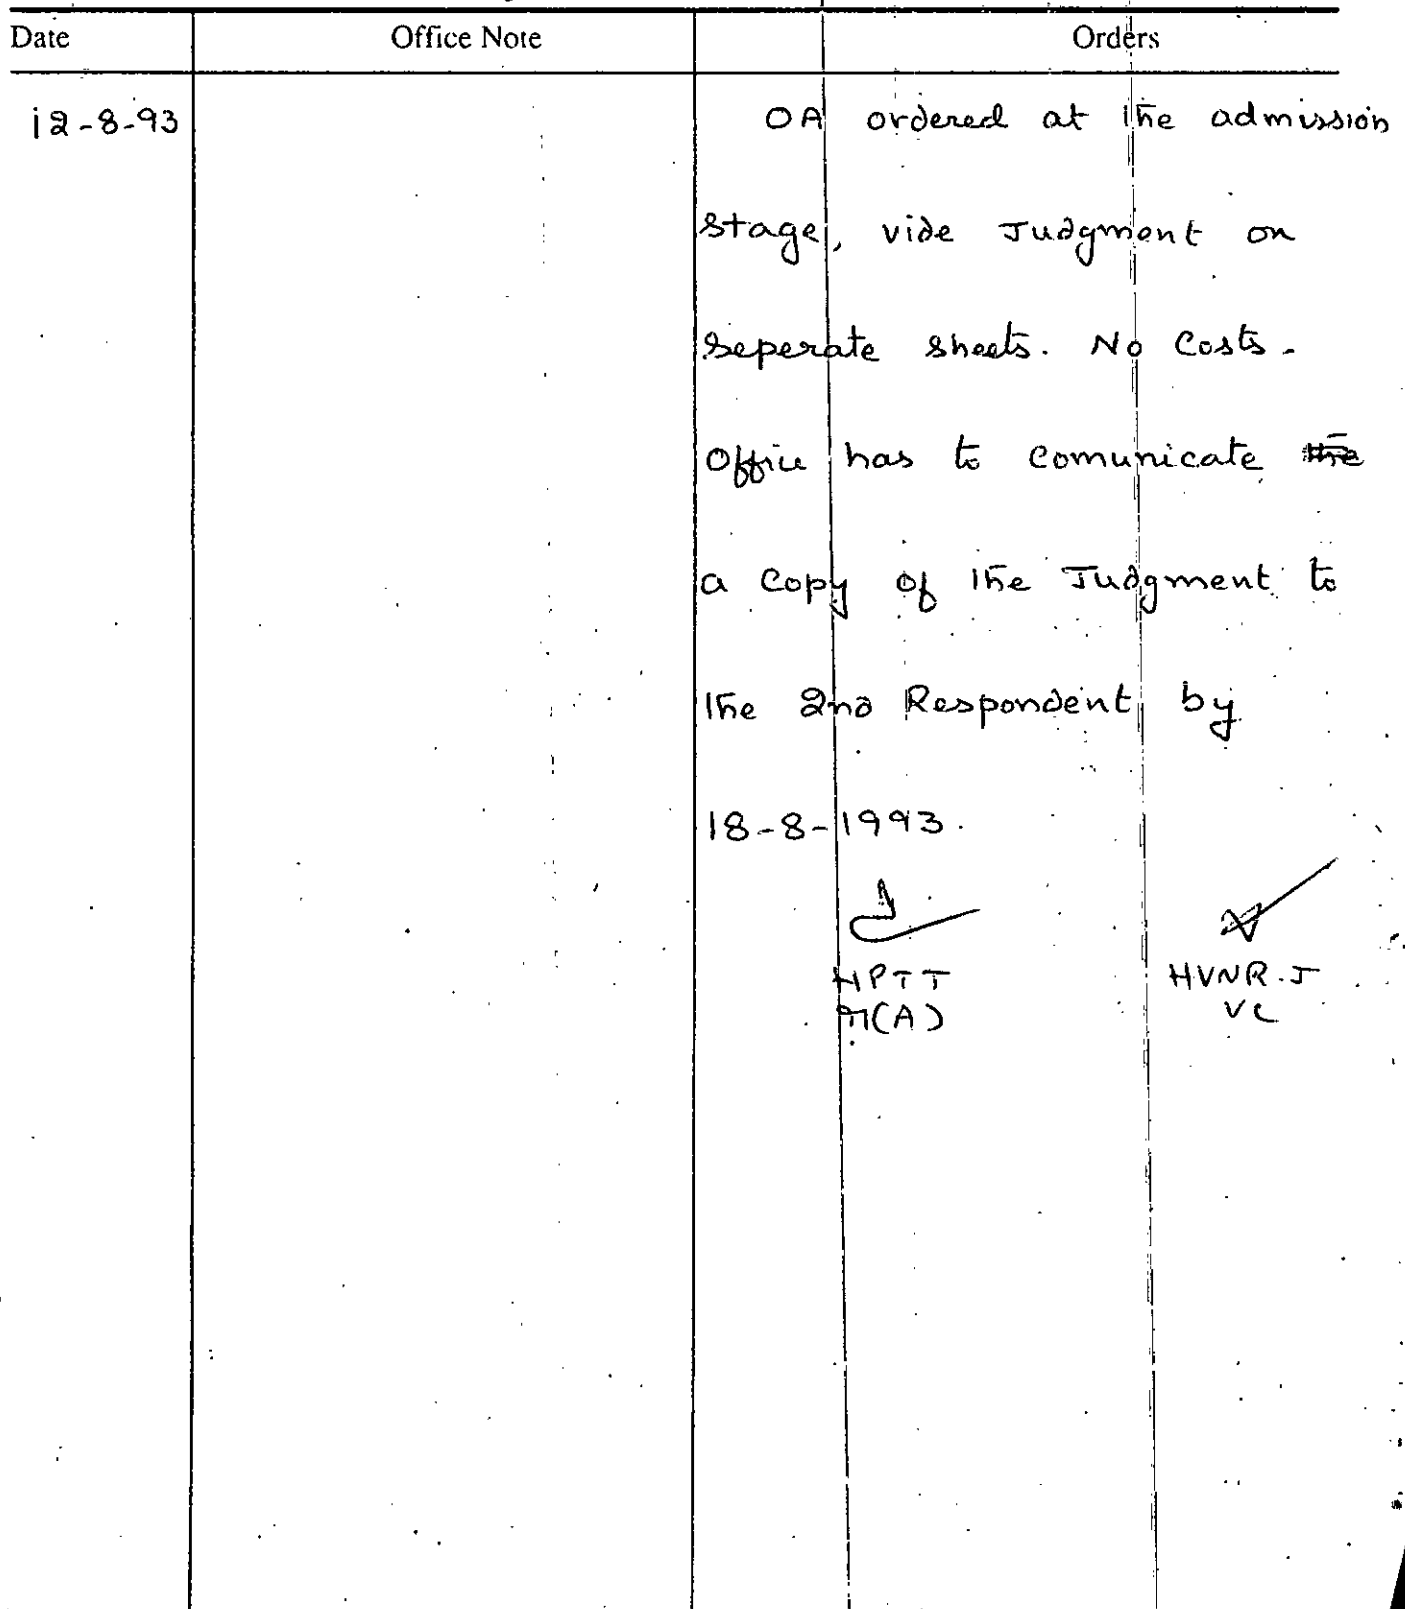 Date Office Note Orders
12-8-93 OA ordered at the admission
stage, vide Judgment on
seperate sheets. No Costs.
Office has to comunicate the
a Copy of the Judgment to
the 2nd Respondent by
18-8-1993.
HPTT HVNR.J
M(A) VC